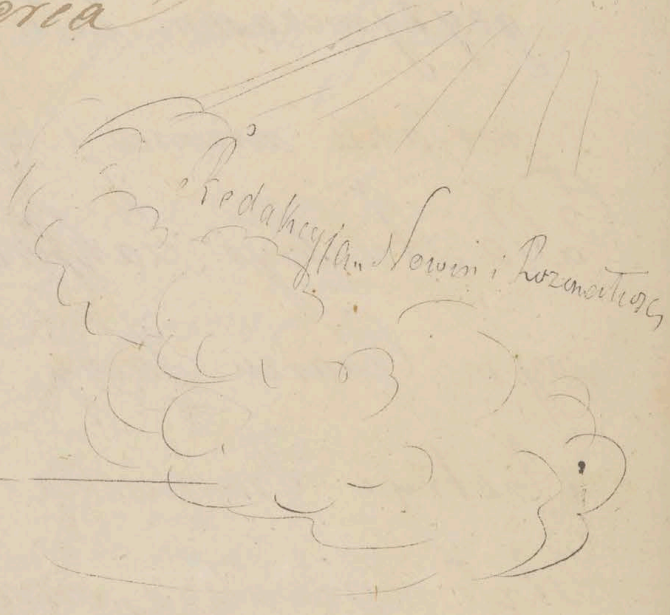 Redakcyja „Nowin i Rozmaitości